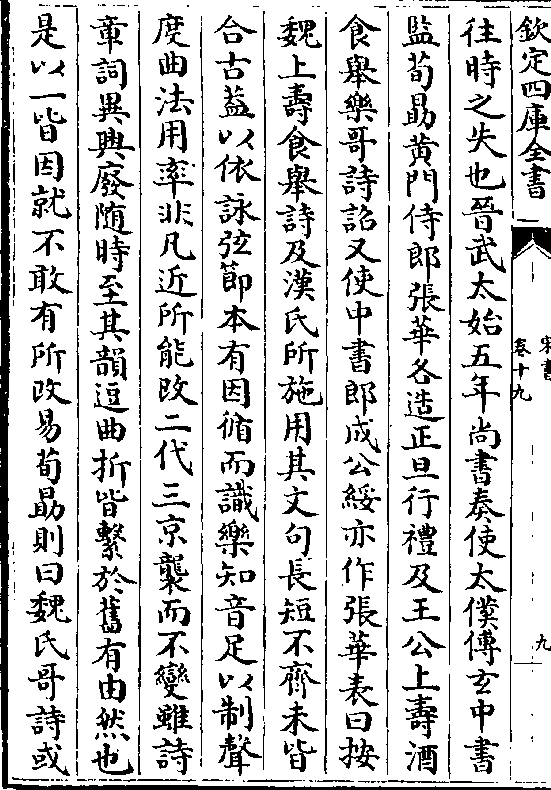 欽定四庫全書
宋書
卷十九
九
往時之失也晉武太始五年尚書奏使太僕傅玄中書
監荀勗黄門侍郎張華各造正旦行禮及王公上壽酒
食舉樂哥詩詔又使中書郎成公綏亦作張華表曰按
魏上壽食舉詩及漢氏所施用其文句長短不齊未皆
合古葢以依詠弦節本有因循而識樂知音足以制聲
度曲法用率非凡近所能改二代三京襲而不變雖詩
章詞異興廢随時至其韻逗曲折皆繫於舊有由然也
是以一皆因就不敢有所改易荀勗則曰魏氏哥詩或